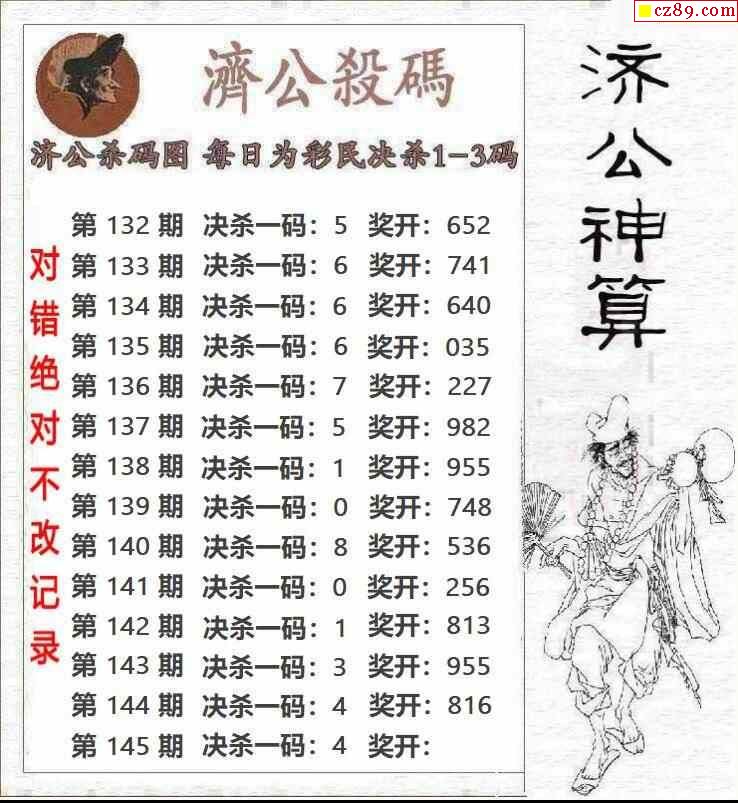 cz89.com
濟公殺碼
济公杀码图 每日为彩民决杀1-3码
第 132 期 决杀一码：5 奖开：652
第 133 期 决杀一码：6 奖开：741
第 134 期 决杀一码：6 奖开：640
第 135 期 决杀一码：6 奖开：035
第 136 期 决杀一码：7 奖开：227
第 137 期 决杀一码：5 奖开：982
第 138 期 决杀一码：1 奖开：955
第 139 期 决杀一码：0 奖开：748
第 140 期 决杀一码：8 奖开：536
第 141 期 决杀一码：0 奖开：256
第 142 期 决杀一码：1 奖开：813
第 143 期 决杀一码：3 奖开：955
第 144 期 决杀一码：4 奖开：816
第 145 期 决杀一码：4 奖开：
对错绝对不改记录
济公神算